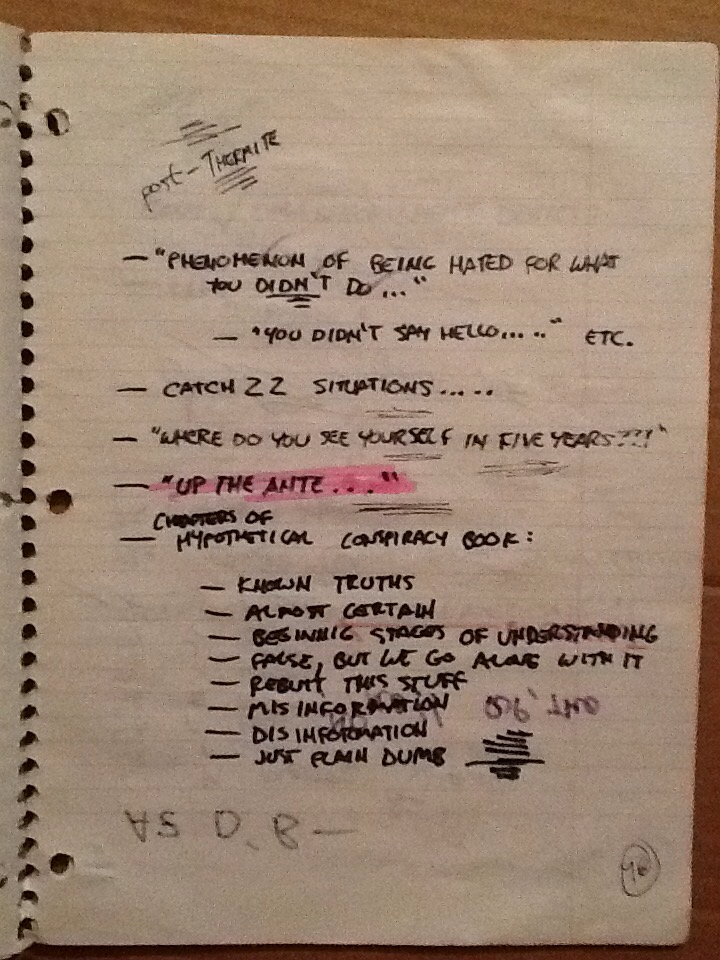 post-THERMITE
— "PHENOMENON OF BEING HATED FOR WHAT
YOU DIDN'T DO..."
— "YOU DIDN'T SAY HELLO....." ETC.
— CATCH 22 SITUATIONS.....
— "WHERE DO YOU SEE YOURSELF IN FIVE YEARS???"
— "UP THE ANTE...."
CHAPTERS OF
— HYPOTHETICAL CONSPIRACY BOOK:
— KNOWN TRUTHS
— ALMOST CERTAIN
— BEGINNIG STAGES OF UNDERSTANDING
— FALSE, BUT WE GO ALONG WITH IT
— REBUTT THIS STUFF
— MISINFORMATION
— DISINFORMATION
— JUST PLAIN DUMB